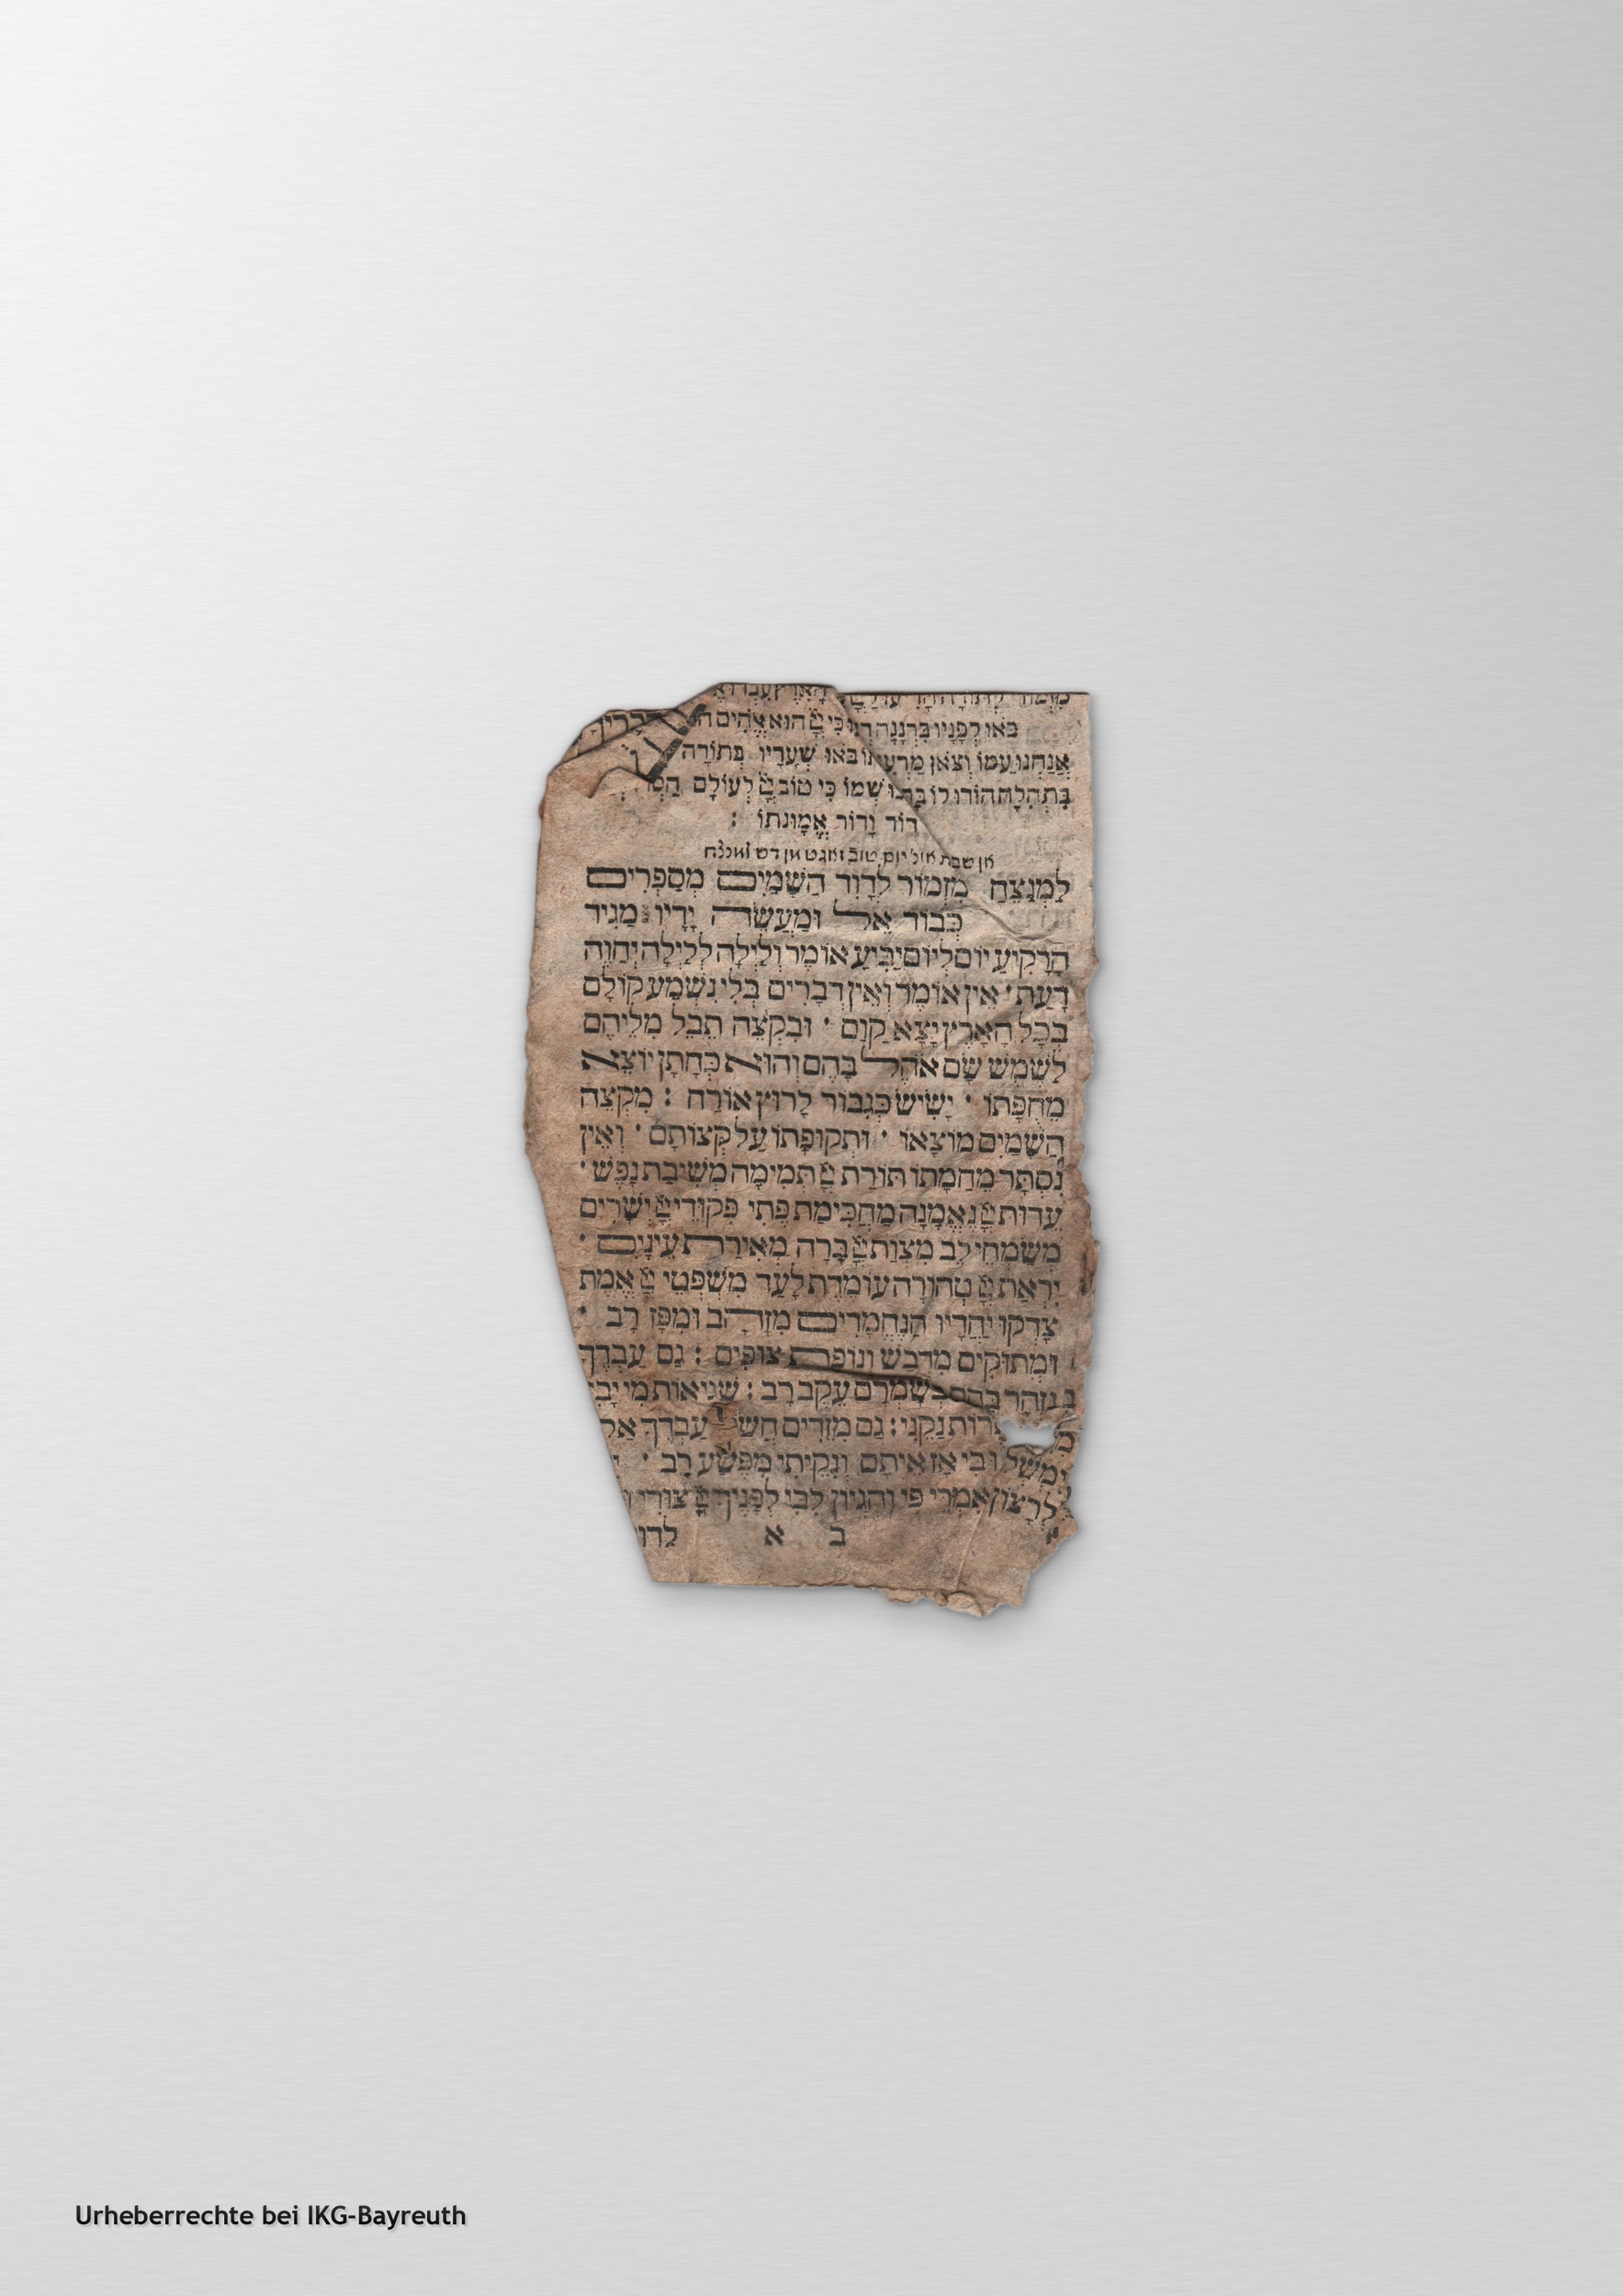 מזמור לתודה הארץ עבדו א
באו לפניו ברננה כי יֽיָ הוא אלהים ה
אנחנו עמו וצאן מרעיתו באו שעריו בתודה
בתהלה הודו לו ברכו שמו כי טוב יֽיָ לעולם חסדו
דור ודור אמונתו :
אן שבת אונ' יום טוב זאגט מן דש
לַמְנַצֵחַ מִזְמוֹר לְדָוִד הַשָׁמַיִם מְסַפְּרִים
כְּבוֹד אֵל וּמַעֲשֵׂה יָדָיו מַגִיד
הָרָקִיעַ יוֹם לְיוֹם יַבִּיעַ אוֹמֶר וְלַיְלָה לְלַיְלָה יְחַוֶה
דָעַת · אֵין אוֹמֶר וְאֵין דְבָרִים בְּלִי נִשְׁמַע קוֹלָם
בְּכָל הָאָרֶץ יָצָא קַוָם · וּבִקְצֵה תֵבֵל מִלֵיהֶם
לַשֶׁמֶשׁ שָׂם אֹהֶל בָּהֶם וְהוּא כְּחָתָן יוֹצֵא
מֵחֻפָּתוֹ · יָשִׂישׂ כְּגִבּוֹר לָרוּץ אוֹרַח : מִקְצֵה
הַשָׁמַיִם מוֹצָאוֹ · וּתְקוּפָתוֹ עַל קְצוֹתָם · וְאֵין
נִסְתָּר מֵחַמָתוֹ תּוֹרַת יֽיָ תְּמִימָה מְשִׁיבַת נָפֶשׁ ·
עֵדוּת יֽיָ נֶאֱמָנָה מַחְכִּימַת פֶּתִי פִּקוּדֵי יֽיָ יְשָׁרִים
מְשַׂמְחֵי לֵב מִצְוַת יֽיָ בָּרָה מְאִירַת עֵינָיִם ·
יִרְאַת יֽיָ טְהוֹרָה עוֹמֶדֶת לָעַד מִשְׁפְּטֵי יֽיָ אֱמֶת
צָדְקוּ יַחְדָיו הַנֶחְמָדִים מִזָהָב וּמִפָּז רָב ·
וּמְתוּקִים מִדְבַשׁ וְנוֹפֶת צוּפִים : גַם עַבְדְךָ
נִזְהָר בָּהֶם בְּשָׁמְרָם עֵקֶב רָב : שְׁגִיאוֹת מִי יָבִי
רוֹת נַקֵנִי : גַם מִזֵדִים חֲשׂ עַבְדֶךָ אַל
יִמְשְׁלוּ בִי אָז אֵיתָם וְנִקֵיתִי מִפֶּשַׁע רָב ·
לְרָצוֹן אִמְרֵי פִי וְהֶגְיוֹן לִבִּי לְפָנֶיךָ יֽיָ צוּרִי
ב א לדו
Urheberrechte bei IKG-Bayreuth